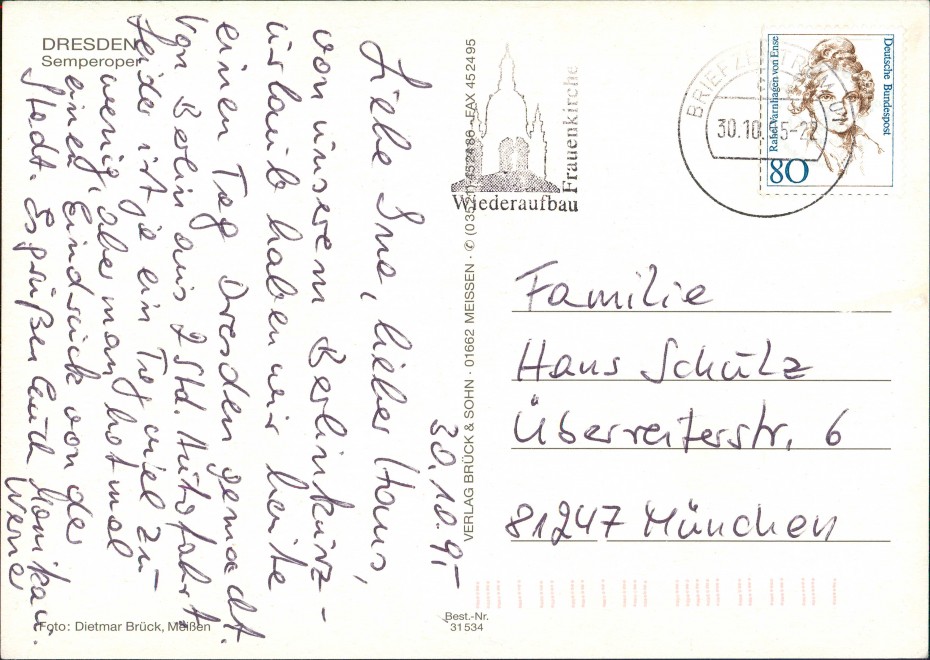 DRESDEN
Semperoper
30.10.95
Liebe Ina, lieber Hans,
von unserem Berlinkurz-
urlaub haben wir heute
einen Tag Dresden gemacht.
Von Berlin aus 2 Std. Autofahrt.
Leider ist ja ein Tag viel zu
wenig, aber man hat mal
einen Eindruck von der
Stadt. Es grüßen Euch Monika u.
Werner
Foto: Dietmar Brück, Meißen
VERLAG BRÜCK & SOHN · 01662 MEISSEN · ✆ (03521) 452486 · FAX 452495
Best.-Nr.
31534
Wiederaufbau
Frauenkirche
BRIEFZENTRUM
30.10.
Rahel Varnhagen von Ense
Deutsche Bundespost
80
Familie
Hans Schulz
Überreiterstr. 6
81247 München